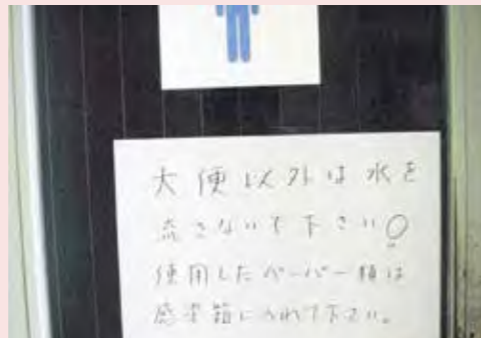 大便以外は水を
流さないで下さい!
使用したペーパー類は
感染箱に入れて下さい。